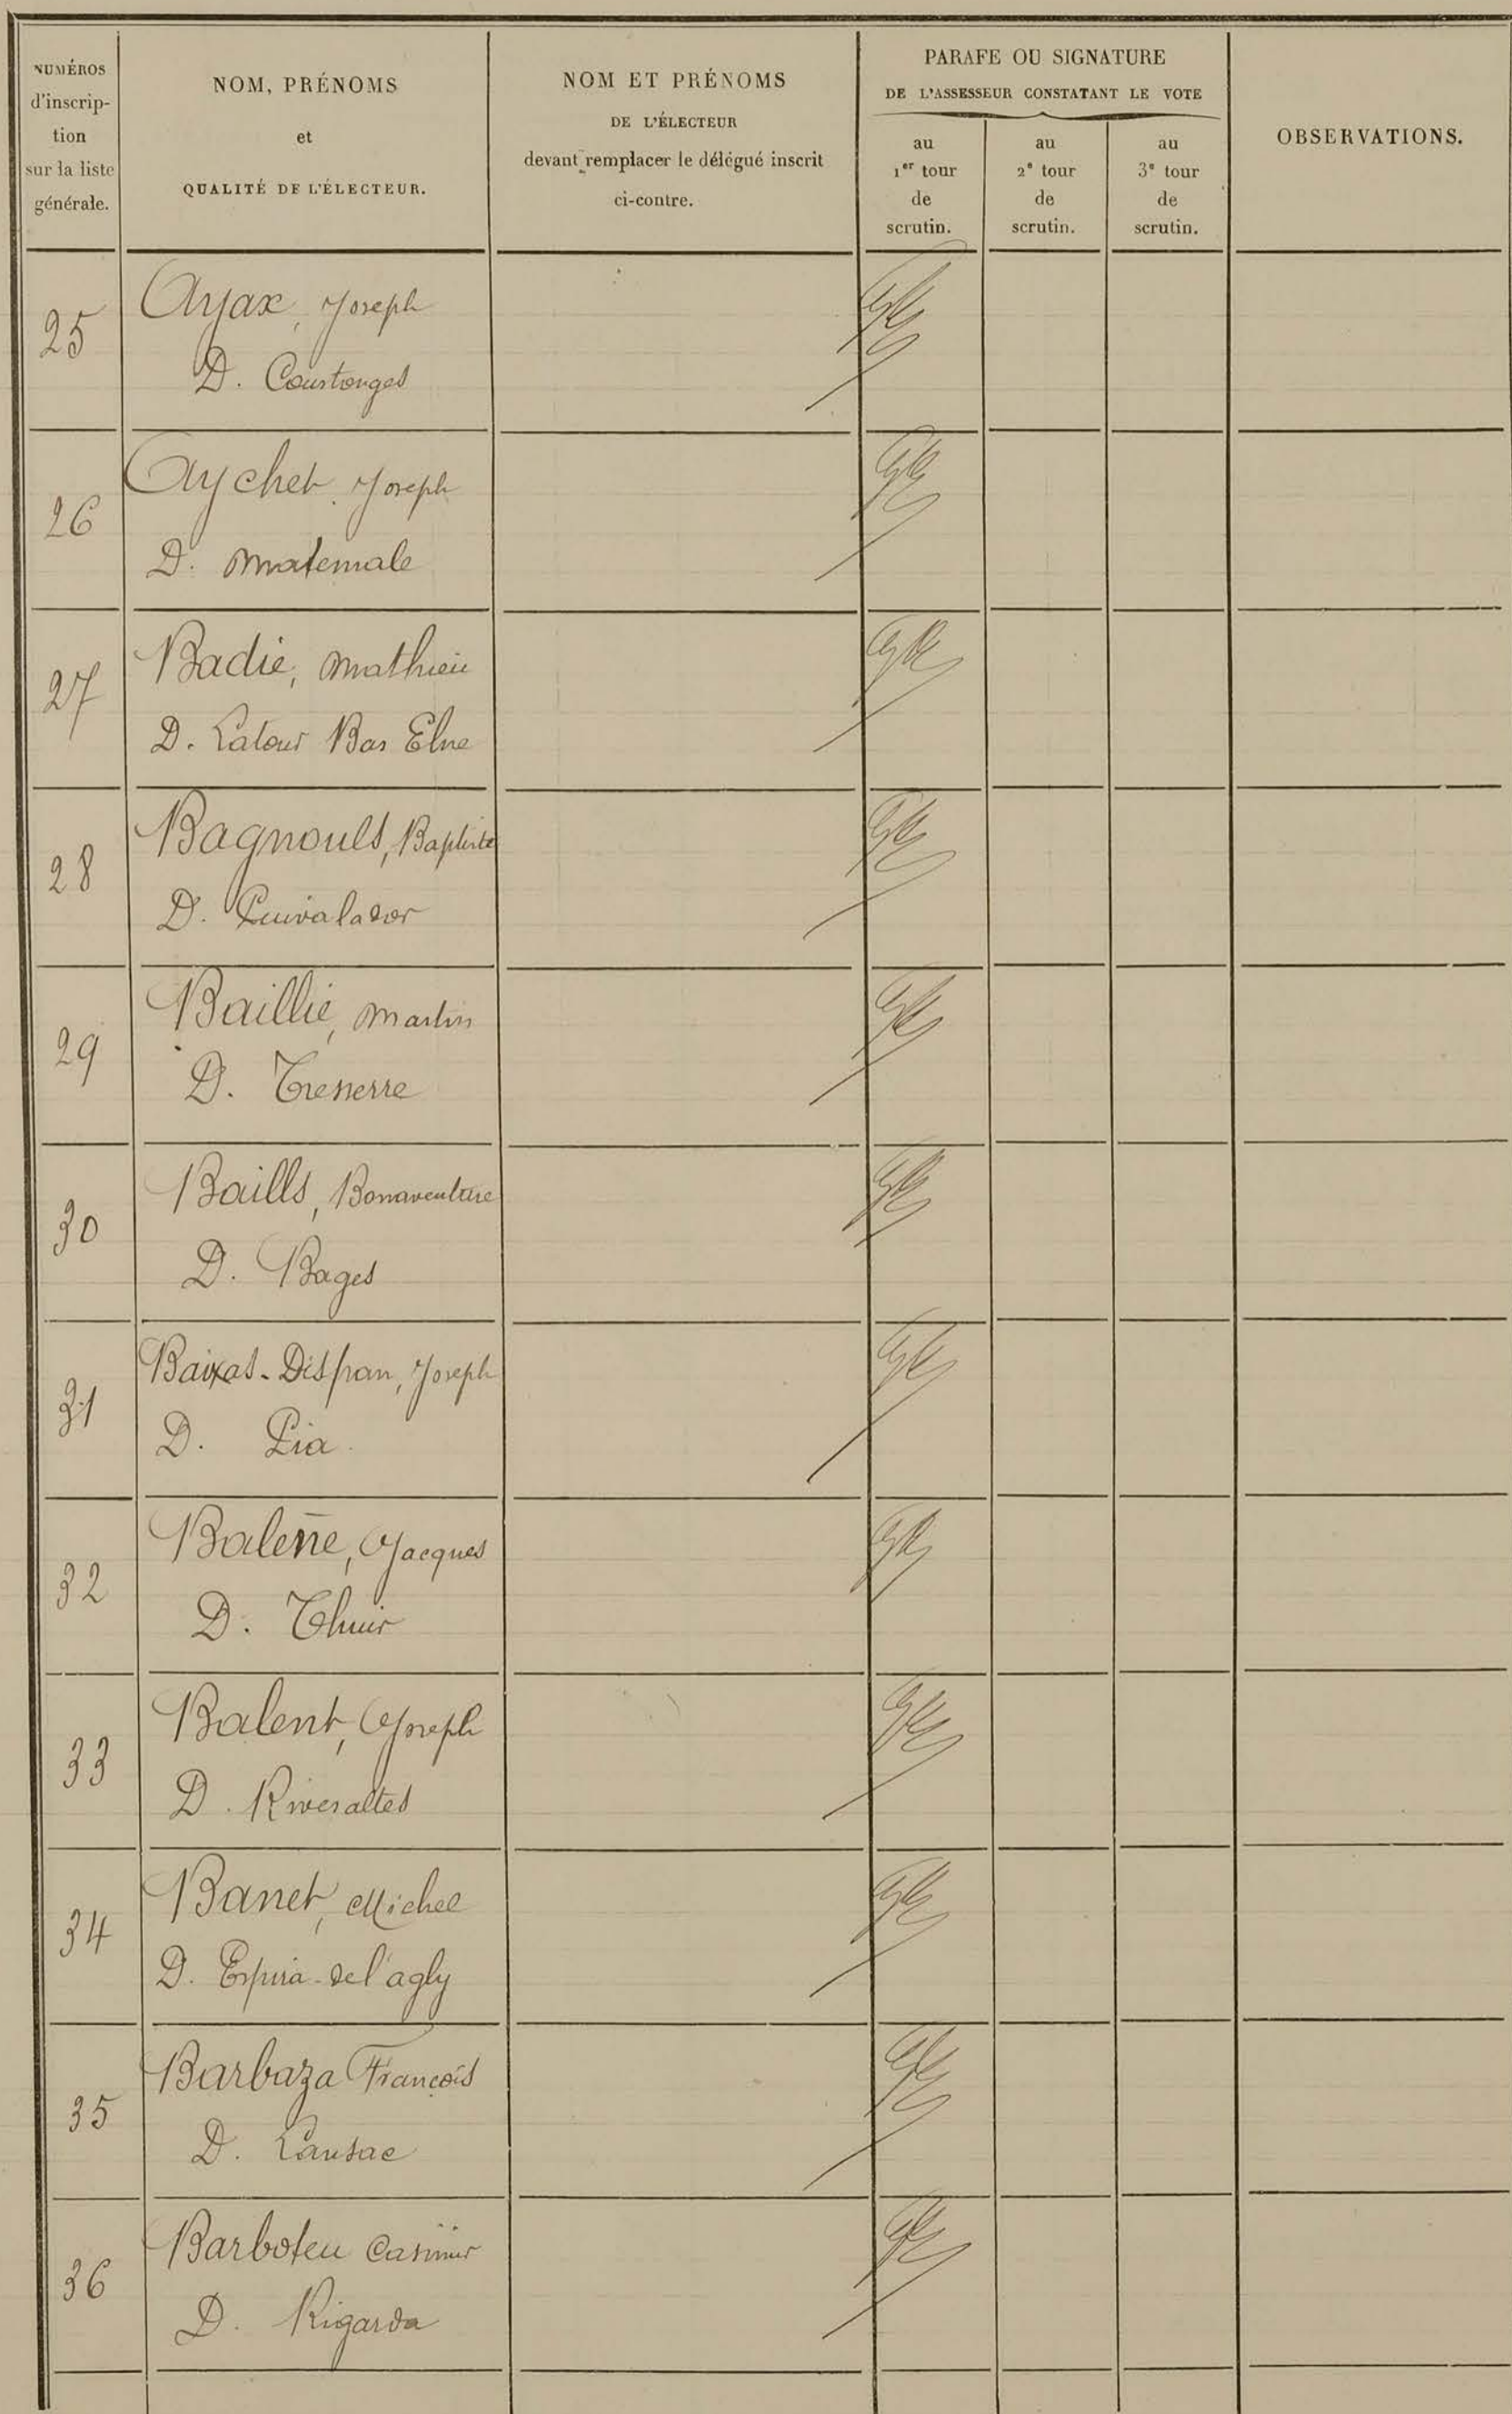 NUMÉROS
d'inscrip-
tion
sur la liste
générale.
NOM, PRÉNOMS
et
QUALITÉ DE L'ÉLECTEUR.
NOM ET PRÉNOMS
DE L'ÉLECTEUR
devant remplacer le délégué inscrit
ci-contre.
PARAFE OU SIGNATURE
DE L'ASSESSEUR CONSTATANT LE VOTE
au
1er tour
de
scrutin.
au
2e tour
de
scrutin.
au
3e tour
de
scrutin.
OBSERVATIONS.
25
Ayax, Joseph
D. Coustouges
26
Aychet Joseph
D. Matemale
27
Badie, Mathieu
D. Latour Bas Elne
28
Bagnouls, Baptiste
D. Puivalador
29
Baillie, Martin
D. Tresserre
30
Baills, Bonaventure
D. Bages
31
Baixas-Dispan, Joseph
D. Pia
32
Balène, Jacques
D. Thuir
33
Balent, Joseph
D. Rivesaltes
34
Banet, Michel
D. Espira-de l'agly
35
Barbaza François
D. Lansac
36
Barboteu Casimir
D. Rigarda